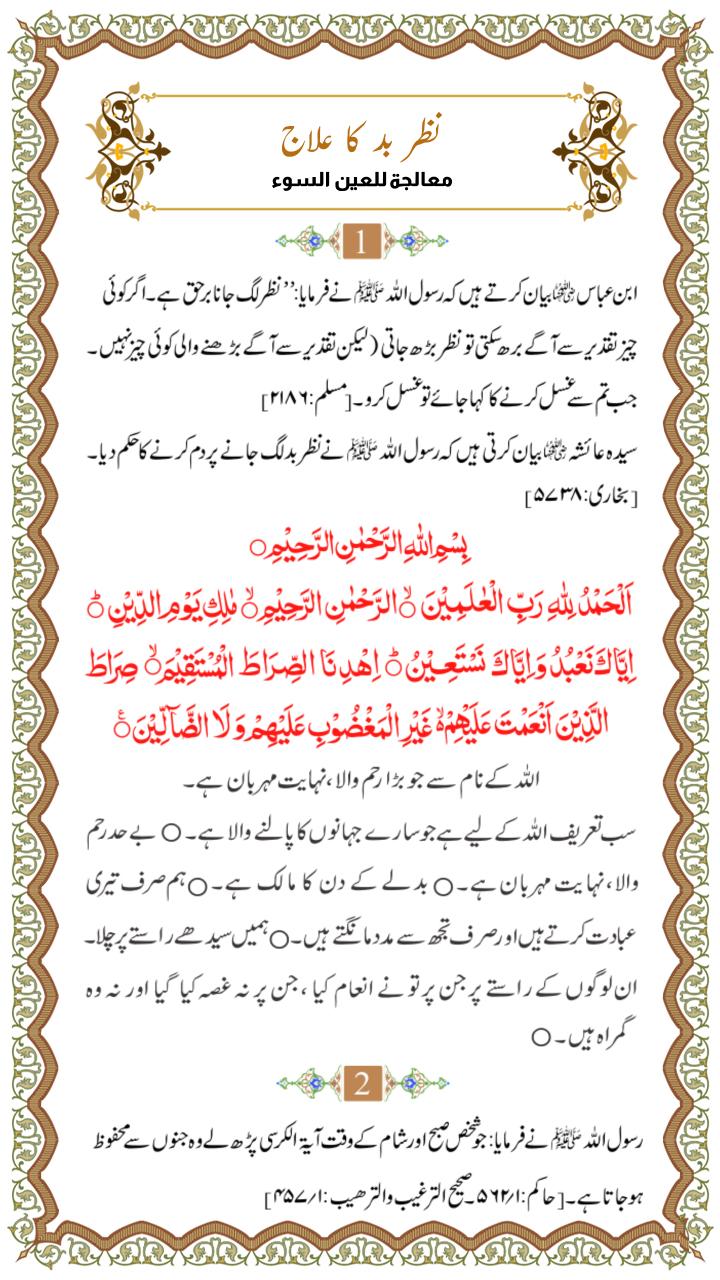 نظر بد کا علاج
معالجة للعين السوء
1
ابن عباس رضی اللہ عنہما بیان کرتے ہیں کہ رسول اللہ ﷺ نے فرمایا: ’’نظر لگ جانا برحق ہے۔ اگر کوئی
چیز تقدیر سے آگے برھ سکتی تو نظر بڑھ جاتی (لیکن تقدیر سے آگے بڑھنے والی کوئی چیز نہیں۔
جب تم سے غسل کرنے کا کہا جائے تو غسل کرو۔ [مسلم: ۲۱۸۶]
سیدہ عائشہ رضی اللہ عنہا بیان کرتی ہیں کہ رسول اللہ ﷺ نے نظر بد لگ جانے پر دم کرنے کا حکم دیا۔
[بخاری: ۵۷۳۸]
بِسْمِ اللهِ الرَّحْمٰنِ الرَّحِيْمِ○
اَلْحَمْدُ لِلّٰهِ رَبِّ الْعٰلَمِيْنَ ۙ الرَّحْمٰنِ الرَّحِيْمِ ۙ مٰلِكِ يَوْمِ الدِّيْنِ ؕ
اِيَّاكَ نَعْبُدُ وَاِيَّاكَ نَسْتَعِيْنُ ؕ اِهْدِنَا الصِّرَاطَ الْمُسْتَقِيْمَ ۙ صِرَاطَ
الَّذِيْنَ اَنْعَمْتَ عَلَيْهِمْ ۙ غَيْرِ الْمَغْضُوْبِ عَلَيْهِمْ وَلَا الضَّآلِّيْنَ ۧ
اللہ کے نام سے جو بڑا رحم والا، نہایت مہربان ہے۔
سب تعریف اللہ کے لیے ہے جو سارے جہانوں کا پالنے والا ہے۔ ○ بے حد رحم
والا، نہایت مہربان ہے۔ ○ بدلے کے دن کا مالک ہے۔ ○ ہم صرف تیری
عبادت کرتے ہیں اور صرف تجھ سے مدد مانگتے ہیں۔ ○ ہمیں سیدھے راستے پر چلا۔
ان لوگوں کے راستے پر جن پر تو نے انعام کیا، جن پر نہ غصہ کیا گیا اور نہ وہ
گمراہ ہیں۔ ○
2
رسول اللہ ﷺ نے فرمایا: جو شخص صبح اور شام کے وقت آیۃ الکرسی پڑھ لے وہ جنوں سے محفوظ
ہو جاتا ہے۔ [حاکم: ۱/۵۶۲۔ صحیح الترغیب والترھیب: ۱/۴۵۷]